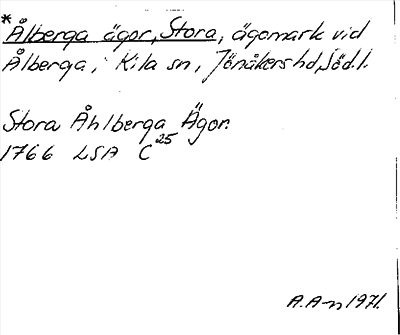 *Ålberga ägor, Stora, ägomark vid
Ålberga, Kila sn, Jönåkers hd, Söd.l.
Stora Åhlberga Ägor.
1766 LSA C 25
A.A-n 1971.